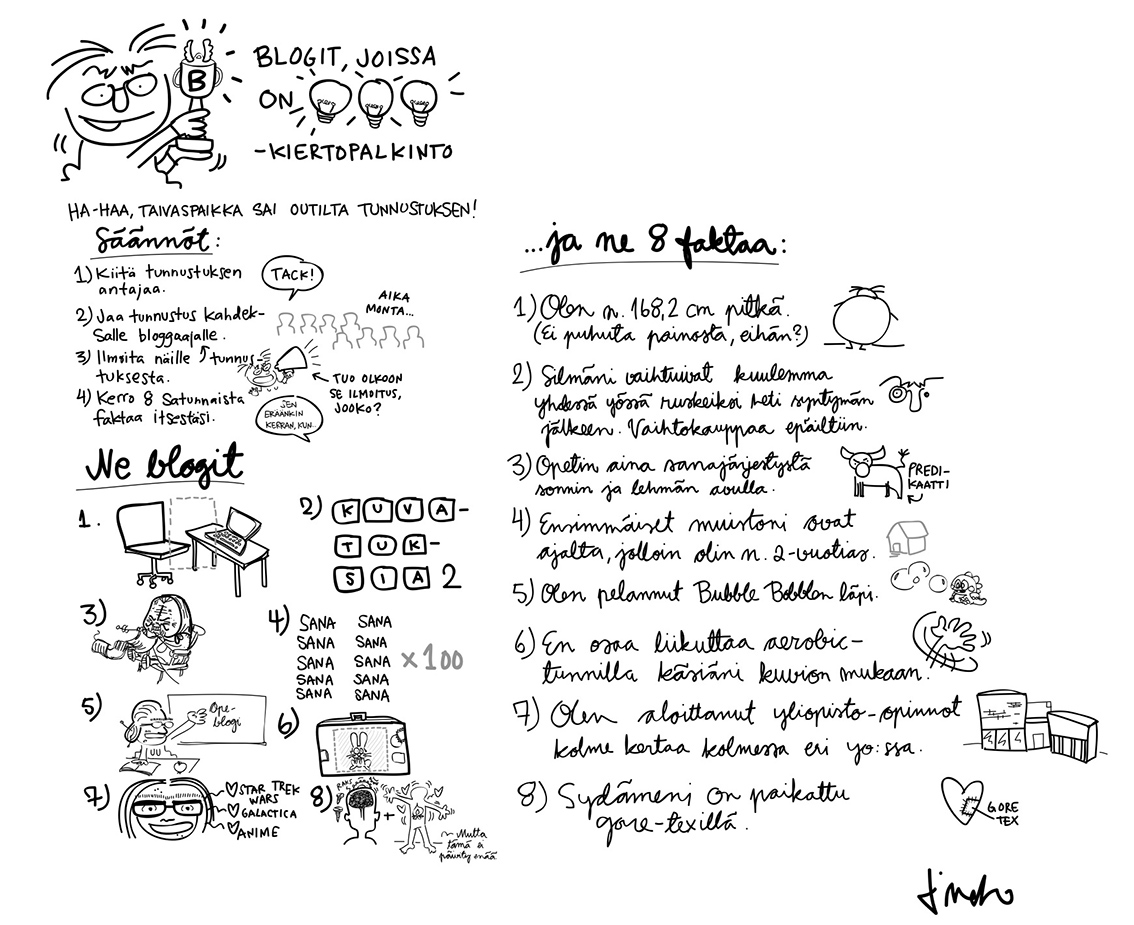 B
BLOGIT, JOISSA
ON
-KIERTOPALKINTO
HA-HAA, TAIVASPAIKKA SAI OUTILTA TUNNUSTUKSEN!
Säännöt:
1) Kiitä tunnustuksen
antajaa.
TACK!
2) Jaa tunnustus kahdek-
salle bloggaajalle.
AIKA
MONTA...
3) Ilmoita näille tunnus-
tuksesta.
TUO OLKOON
SE ILMOITUS,
JOOKO?
4) Kerro 8 satunnaista
faktaa itsestäsi.
JEN
ERÄÄNKIN
KERRAN, KUN...
Ne blogit
1.
2) KUVA-
TUK-
SIA 2
3)
4) SANA SANA
SANA SANA
SANA SANA
SANA SANA
SANA SANA
x100
5)
Ope-
blogi
6)
7)
STAR TREK
WARS
GALACTICA
ANIME
8)
+
Mutta
tämä ei
päivity enää
...ja ne 8 faktaa:
1) Olen n. 168,2 cm pitkä.
(Ei puhuta painosta, eihän?)
2) Silmäni vaihtuivat kuulemma
yhdessä yössä ruskeiksi heti syntymän
jälkeen. Vaihtokauppaa epäiltiin.
3) Opetin aina sanajärjestystä
sonnin ja lehmän avulla.
PREDI-
KAATTI
4) Ensimmäiset muistoni ovat
ajalta, jolloin olin n. 2-vuotias.
5) Olen pelannut Bubble Bobblen läpi.
6) En osaa liikuttaa aerobic-
tunnilla käsiäni kuvion mukaan.
7) Olen aloittanut yliopisto-opinnot
kolme kertaa kolmessa eri yo:ssa.
8) Sydämeni on paikattu
gore-texillä.
GORE
TEX